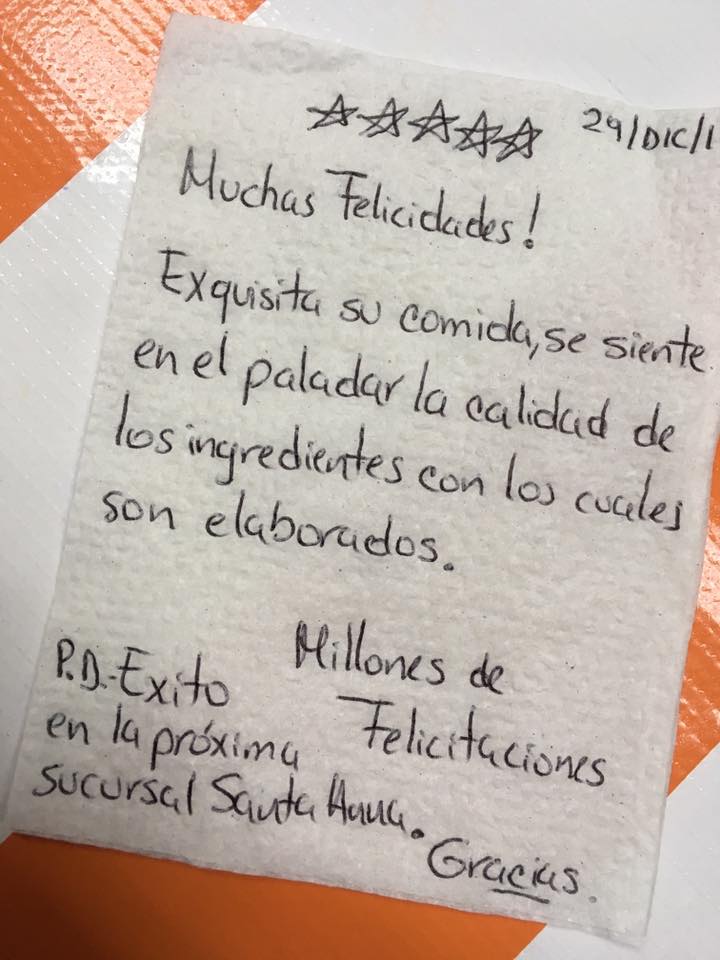 ☆☆☆☆☆ 29/DIC/1
Muchas Felicidades!
Exquisita su comida, se siente
en el paladar la calidad de
los ingredientes con los cuales
son elaborados.
Millones de
Felicitaciones
P.D.-Exito
en la próxima
sucursal Santa Anna.
Gracias.